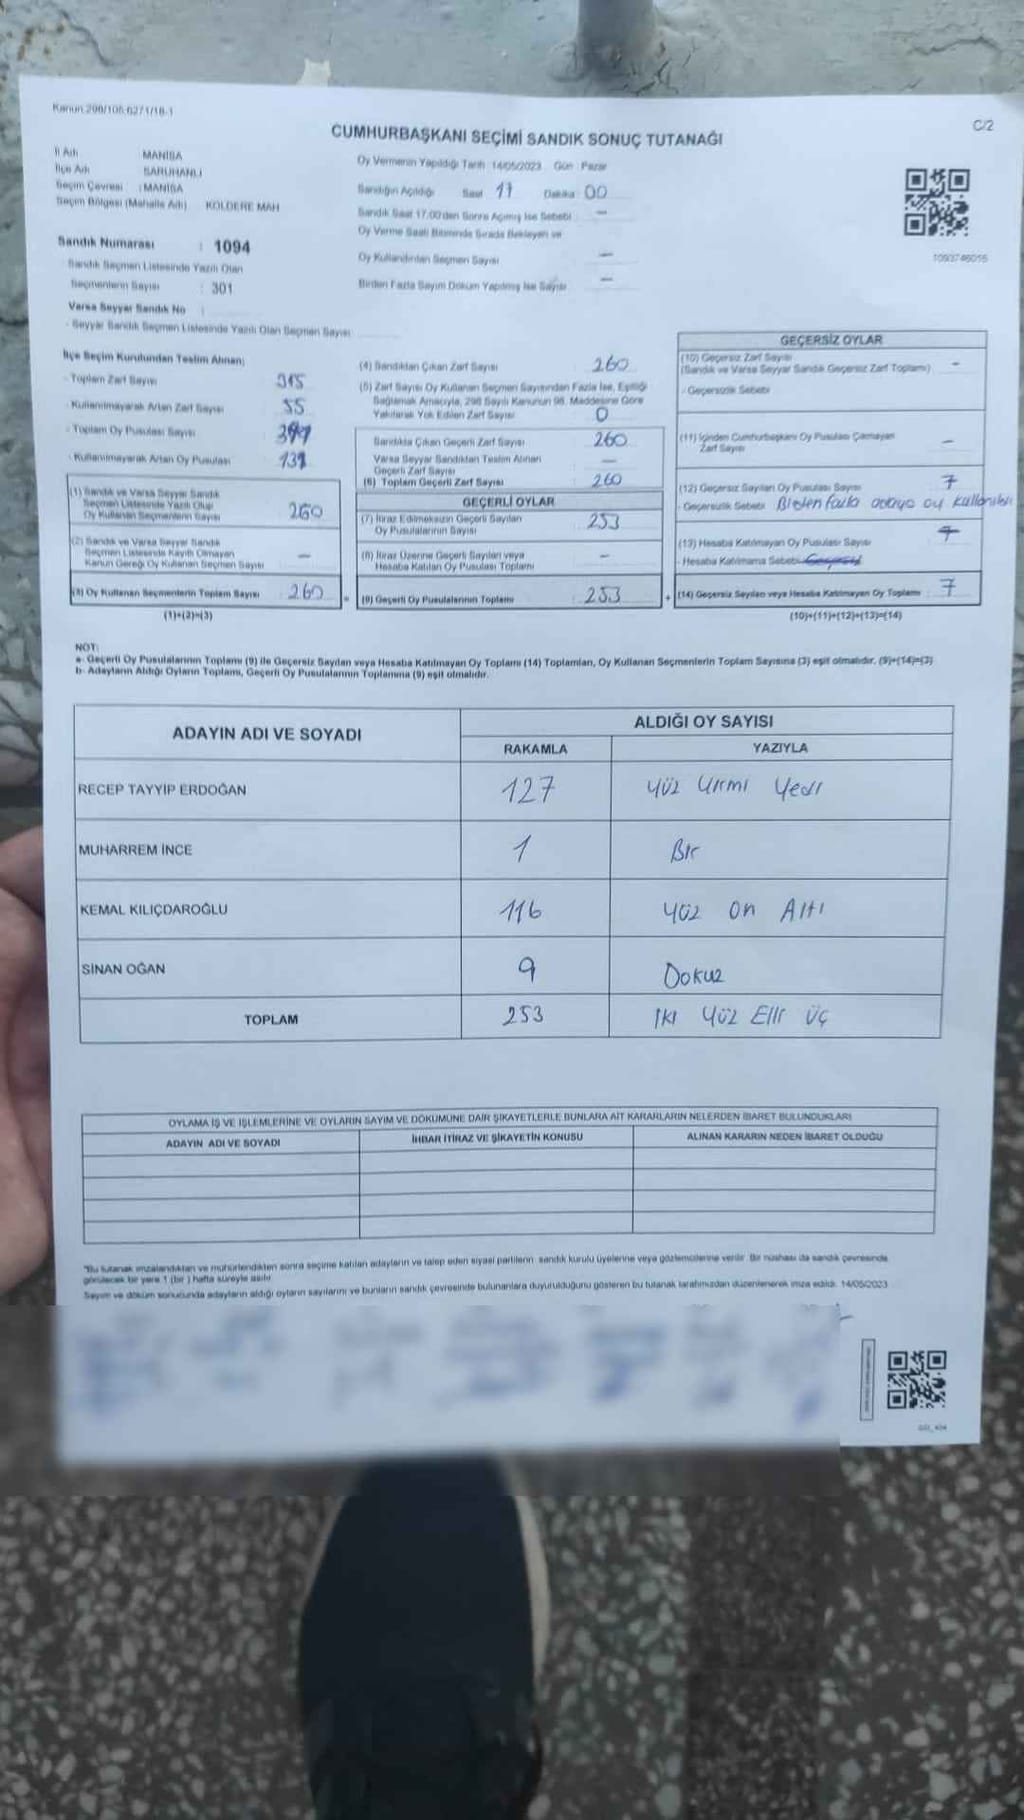 Kanun 298/106-6271/18-1
C/2
CUMHURBAŞKANI SEÇİMİ SANDIK SONUÇ TUTANAĞI
İl Adı MANİSA
İlçe Adı SARUHANLI
Seçim Çevresi : MANİSA
Seçim Bölgesi (Mahalle Adı) KOLDERE MAH
Sandık Numarası : 1094
Sandık Seçmen Listesinde Yazılı Olan
Seçmenlerin Sayısı : 301
Varsa Seyyar Sandık No
- Seyyar Sandık Seçmen Listesinde Yazılı Olan Seçmen Sayısı
Oy Vermenin Yapıldığı Tarih 14/05/2023 Gün : Pazar
Sandığın Açıldığı Saat 17 Dakika 00
Sandık Saat 17.00'den Sonra Açılmış İse Sebebi –
Oy Verme Saati Bitiminde Sırada Bekleyen ve
Oy Kullandırılan Seçmen Sayısı –
Birden Fazla Sayım Döküm Yapılmış İse Sayısı –
1093746016
İlçe Seçim Kurulundan Teslim Alınan;
- Toplam Zarf Sayısı 315
- Kullanılmayarak Artan Zarf Sayısı 55
- Toplam Oy Pusulası Sayısı
- Kullanılmayarak Artan Oy Pusulası 131
(1) Sandık ve Varsa Seyyar Sandık
Seçmen Listesinde Yazılı Olup
Oy Kullanan Seçmenlerin Sayısı 260
(2) Sandık ve Varsa Seyyar Sandık
Seçmen Listesinde Kayıtlı Olmayan
Kanun Gereği Oy Kullanan Seçmen Sayısı –
(3) Oy Kullanan Seçmenlerin Toplam Sayısı 260 =
(1)+(2)=(3)
(4) Sandıktan Çıkan Zarf Sayısı 260
(5) Zarf Sayısı Oy Kullanan Seçmen Sayısından Fazla İse, Eşitliği
Sağlamak Amacıyla, 298 Sayılı Kanunun 98. Maddesine Göre
Yakılarak Yok Edilen Zarf Sayısı 0
Sandıkta Çıkan Geçerli Zarf Sayısı 260
Varsa Seyyar Sandıktan Teslim Alınan
Geçerli Zarf Sayısı –
(6) Toplam Geçerli Zarf Sayısı 260
GEÇERLİ OYLAR
(7) İtiraz Edilmeksizin Geçerli Sayılan
Oy Pusulalarının Sayısı 253
(8) İtiraz Üzerine Geçerli Sayılan veya
Hesaba Katılan Oy Pusulası Toplamı –
(9) Geçerli Oy Pusulalarının Toplamı 253 +
GEÇERSİZ OYLAR
(10) Geçersiz Zarf Sayısı
(Sandık ve Varsa Seyyar Sandık Geçersiz Zarf Toplamı) –
- Geçersizlik Sebebi
(11) İçinden Cumhurbaşkanı Oy Pusulası Çıkmayan
Zarf Sayısı –
(12) Geçersiz Sayılan Oy Pusulası Sayısı 7
- Geçersizlik Sebebi Birden fazla adaya oy kullanılması
(13) Hesaba Katılmayan Oy Pusulası Sayısı 7
- Hesaba Katılmama Sebebi
(14) Geçersiz Sayılan veya Hesaba Katılmayan Oy Toplamı 7
(10)+(11)+(12)+(13)=(14)
NOT:
a- Geçerli Oy Pusulalarının Toplamı (9) ile Geçersiz Sayılan veya Hesaba Katılmayan Oy Toplamı (14) Toplamları, Oy Kullanan Seçmenlerin Toplam Sayısına (3) eşit olmalıdır. (9)+(14)=(3)
b- Adayların Aldığı Oyların Toplamı, Geçerli Oy Pusulalarının Toplamına (9) eşit olmalıdır.
ADAYIN ADI VE SOYADI ALDIĞI OY SAYISI
RAKAMLA YAZIYLA
RECEP TAYYİP ERDOĞAN 127 Yüz Yirmi Yedi
MUHARREM İNCE 1 Bir
KEMAL KILIÇDAROĞLU 116 Yüz On Altı
SİNAN OĞAN 9 Dokuz
TOPLAM 253 İki Yüz Elli Üç
OYLAMA İŞ VE İŞLEMLERİNE VE OYLARIN SAYIM VE DÖKÜMÜNE DAİR ŞİKAYETLERLE BUNLARA AİT KARARLARIN NELERDEN İBARET BULUNDUKLARI
ADAYIN ADI VE SOYADI İHBAR İTİRAZ VE ŞİKAYETİN KONUSU ALINAN KARARIN NEDEN İBARET OLDUĞU
"Bu tutanak imzalandıktan ve mühürlendikten sonra seçime katılan adayların ve talep eden siyasi partilerin sandık kurulu üyelerine veya gözlemcilerine verilir. Bir nüshası da sandık çevresinde
görülecek bir yere 1 (bir) hafta süreyle asılır.
Sayım ve döküm sonucunda adayların aldığı oyların sayılarını ve bunların sandık çevresinde bulunanlara duyurulduğunu gösteren bu tutanak tarafımızdan düzenlenerek imza edildi. 14/05/2023